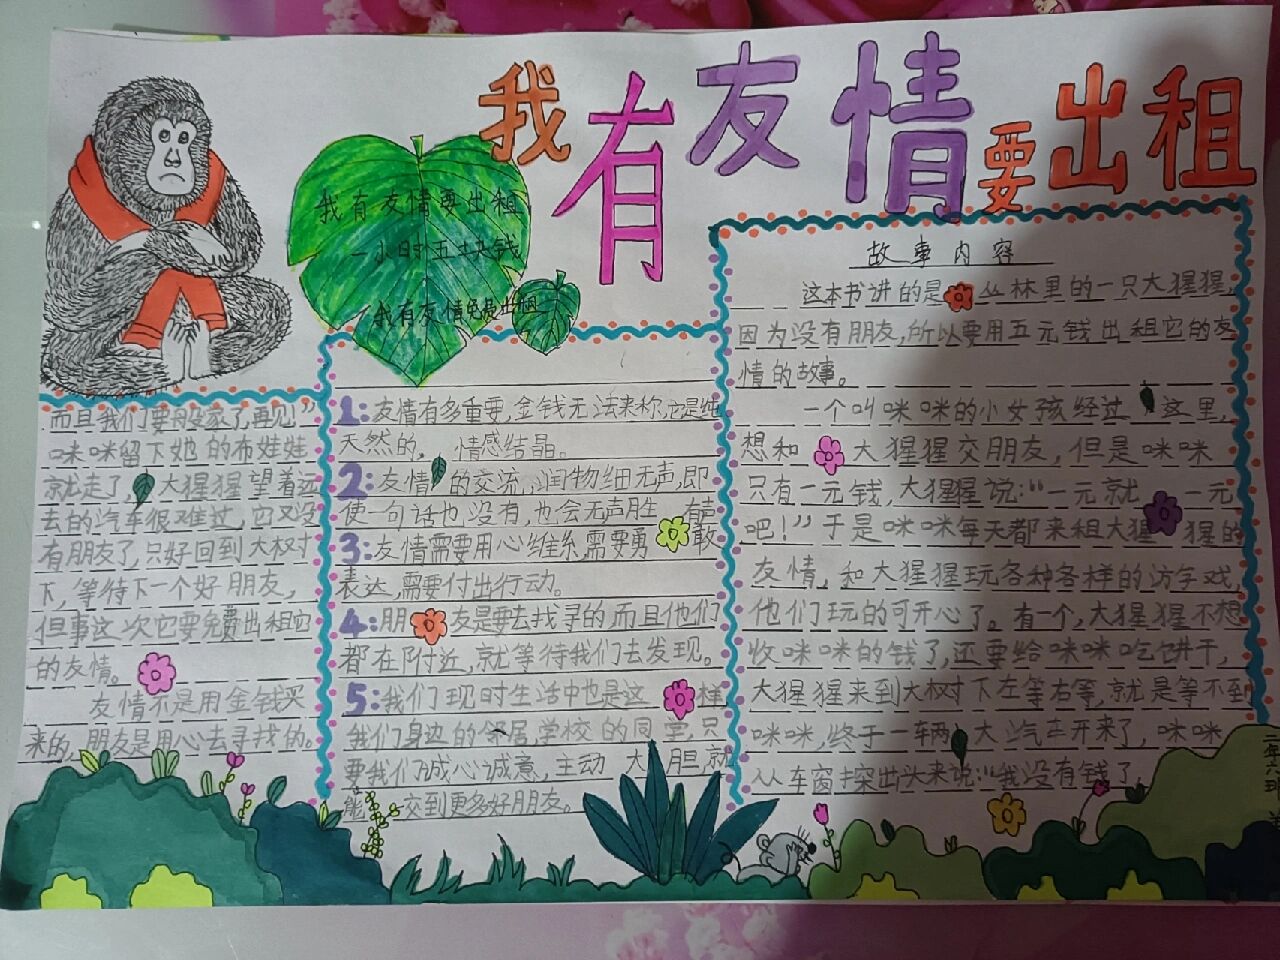 我有友情要出租
我有友情要出租
一小时五块钱
我有友情免费出租
故事内容
这本书讲的是丛林里的一只大猩猩,
因为没有朋友,所以要用五元钱出租它的友
情的故事。
一个叫咪咪的小女孩经过这里,
想和大猩猩交朋友,但是咪咪
只有一元钱,大猩猩说:“一元就一元
吧!”于是咪咪每天都来租大猩猩的
友情,和大猩猩玩各种各样的游戏,
他们玩的可开心了。有一个,大猩猩不想
收咪咪的钱了,还要给咪咪吃饼干,
大猩猩来到大树下左等右等,就是等不到
咪咪,终于一辆大汽车开来了,咪咪
从车窗探出头来说:“我没有钱了,
而且我们要搬家了,再见”
咪咪留下她的布娃娃
就走了,大猩猩望着远
去的汽车很难过,它又没
有朋友了,只好回到大树
下,等待下一个好朋友,
但事这次它要免费出租它
的友情。
友情不是用金钱买
来的,朋友是用心去寻找的。
1:友情有多重要,金钱无法来称,它是纯
天然的,情感结晶。
2:友情的交流,润物细无声,即
使一句话也没有,也会无声胜有声
3:友情需要用心维系,需要勇敢
表达,需要付出行动。
4:朋友是要去找寻的而且他们
都在附近,就等待我们去发现。
5:我们现时生活中也是这样
我们身边的邻居,学校的同学,只
要我们诚心诚意,主动大胆,就
能交到更多好朋友。
二年六班